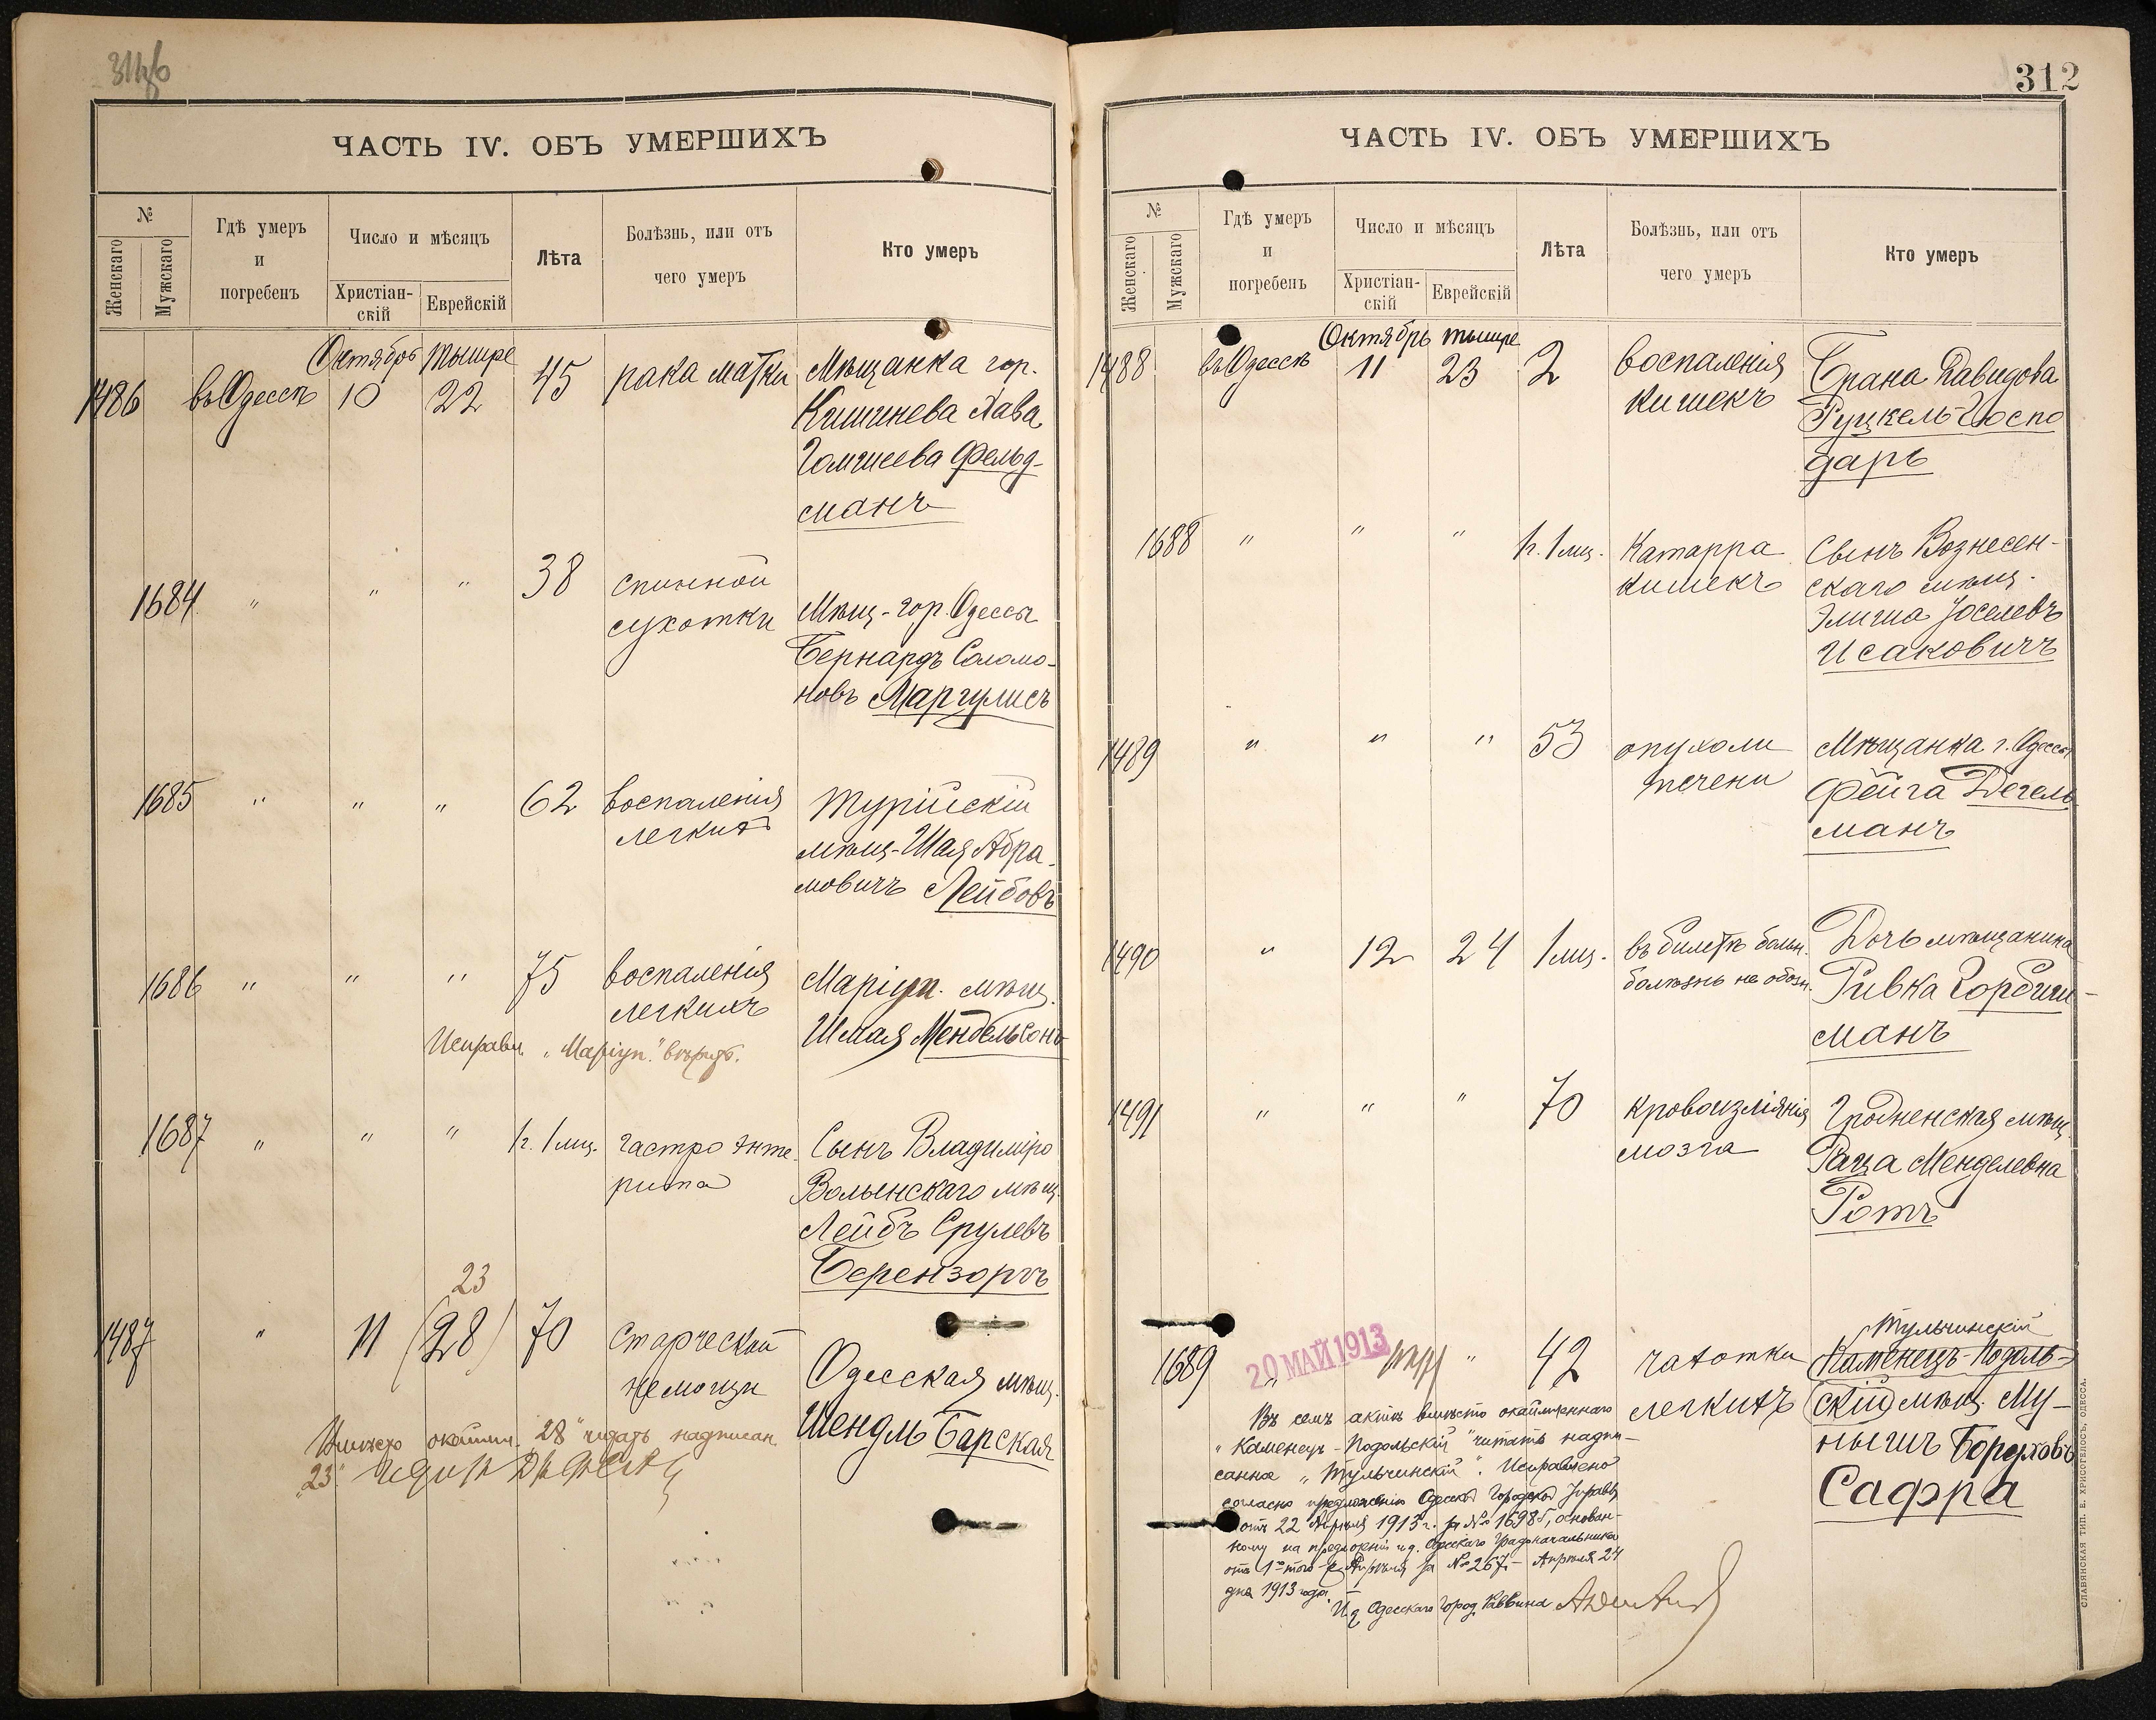 ЧАСТЬ IV. ОБЪ УМЕРШИХЪ
№
Женскаго
Мужскаго
Гдѣ умеръ
и
погребенъ
Число и мѣсяцъ
Христіан-
скій
Еврейскій
Лѣта
Болѣзнь, или отъ
чего умеръ
Кто умеръ
Октябрь Тышре
1486 въ Одессѣ 10 22 45 рака матки Мѣщанка гор.
Кишинева Хава
Фельд-
манъ
1684 " " " 38 спинной
сухотки Мѣщ- гор. Одессы
Бернардъ Соломо-
новъ Маргулисъ
1685 " " " 62 воспаленія
легкихъ Турійскій
мѣщ- Шая Абра-
мовичъ Лейбовъ
1686 " " " 75 воспаленія
легкихъ Маріуп. мѣщ.
Шмая Мендельсонъ
Исправл. "Маріуп." вѣрно.
1687 " " " 1г. 1мц. гастро энте-
рита Сынъ Владиміро
Волынскаго мѣщ.
Лейбъ Срулевъ
Берензоръ
23
1487 " 11 (28) 70 старческой
немощи Одесская мѣщ.
Шендль Барская
Вмѣсто окаймл. "28" читать надписан.
"23".
312
ЧАСТЬ IV. ОБЪ УМЕРШИХЪ
№
Женскаго
Мужскаго
Гдѣ умеръ
и
погребенъ
Число и мѣсяцъ
Христіан-
скій
Еврейскій
Лѣта
Болѣзнь, или отъ
чего умеръ
Кто умеръ
Октябрь Тышре
1488 въ Одессѣ 11 23 2 воспаленія
кишекъ Брана Давидова
Руцкель-Госпо
дарь
1688 " " " 1г. 1мц. Катарра
кишекъ Сынъ Вознесен-
скаго мѣщ.
Элигиа Іоселевъ
Исаковичъ
1489 " " " 53 опухоли
печени Мѣщанка г. Одессы
Фейга Дегель
манъ
1490 " 12 24 1мц. въ билетѣ больн.
болѣзнь не обозн. Дочь мѣщанина
Ривка
манъ
1491 " " " 70 кровоизліянія
мозга Гродненская мѣщ.
Раца Менделевна
Ротъ
Тульчинскій
1689 " 20 МАЙ 1913 " 42 чахотки
легкихъ (Каменецъ-Подоль-
скій) мѣщ. Му-
нышъ Боруховъ
Сафра
Въ семъ актѣ вмѣсто окаймленнаго
"Каменецъ-Подольскій" читать надпи-
санное "Тульчинскій". Исправлено
согласно предложенію Одесской Городской Управы
отъ 22 Апрѣля 1913 г. за № 16985, основан-
ному на предложеніи и.д. Одесскаго Градоначальника
отъ 1-го того-же Апрѣля за № 267- Апрѣля 24
дня 1913 года.
И.д. Одесскаго Город. Раввина
СЛАВЯНСКАЯ ТИП. Е. ХРИСОГЕЛОСЪ, ОДЕССА.